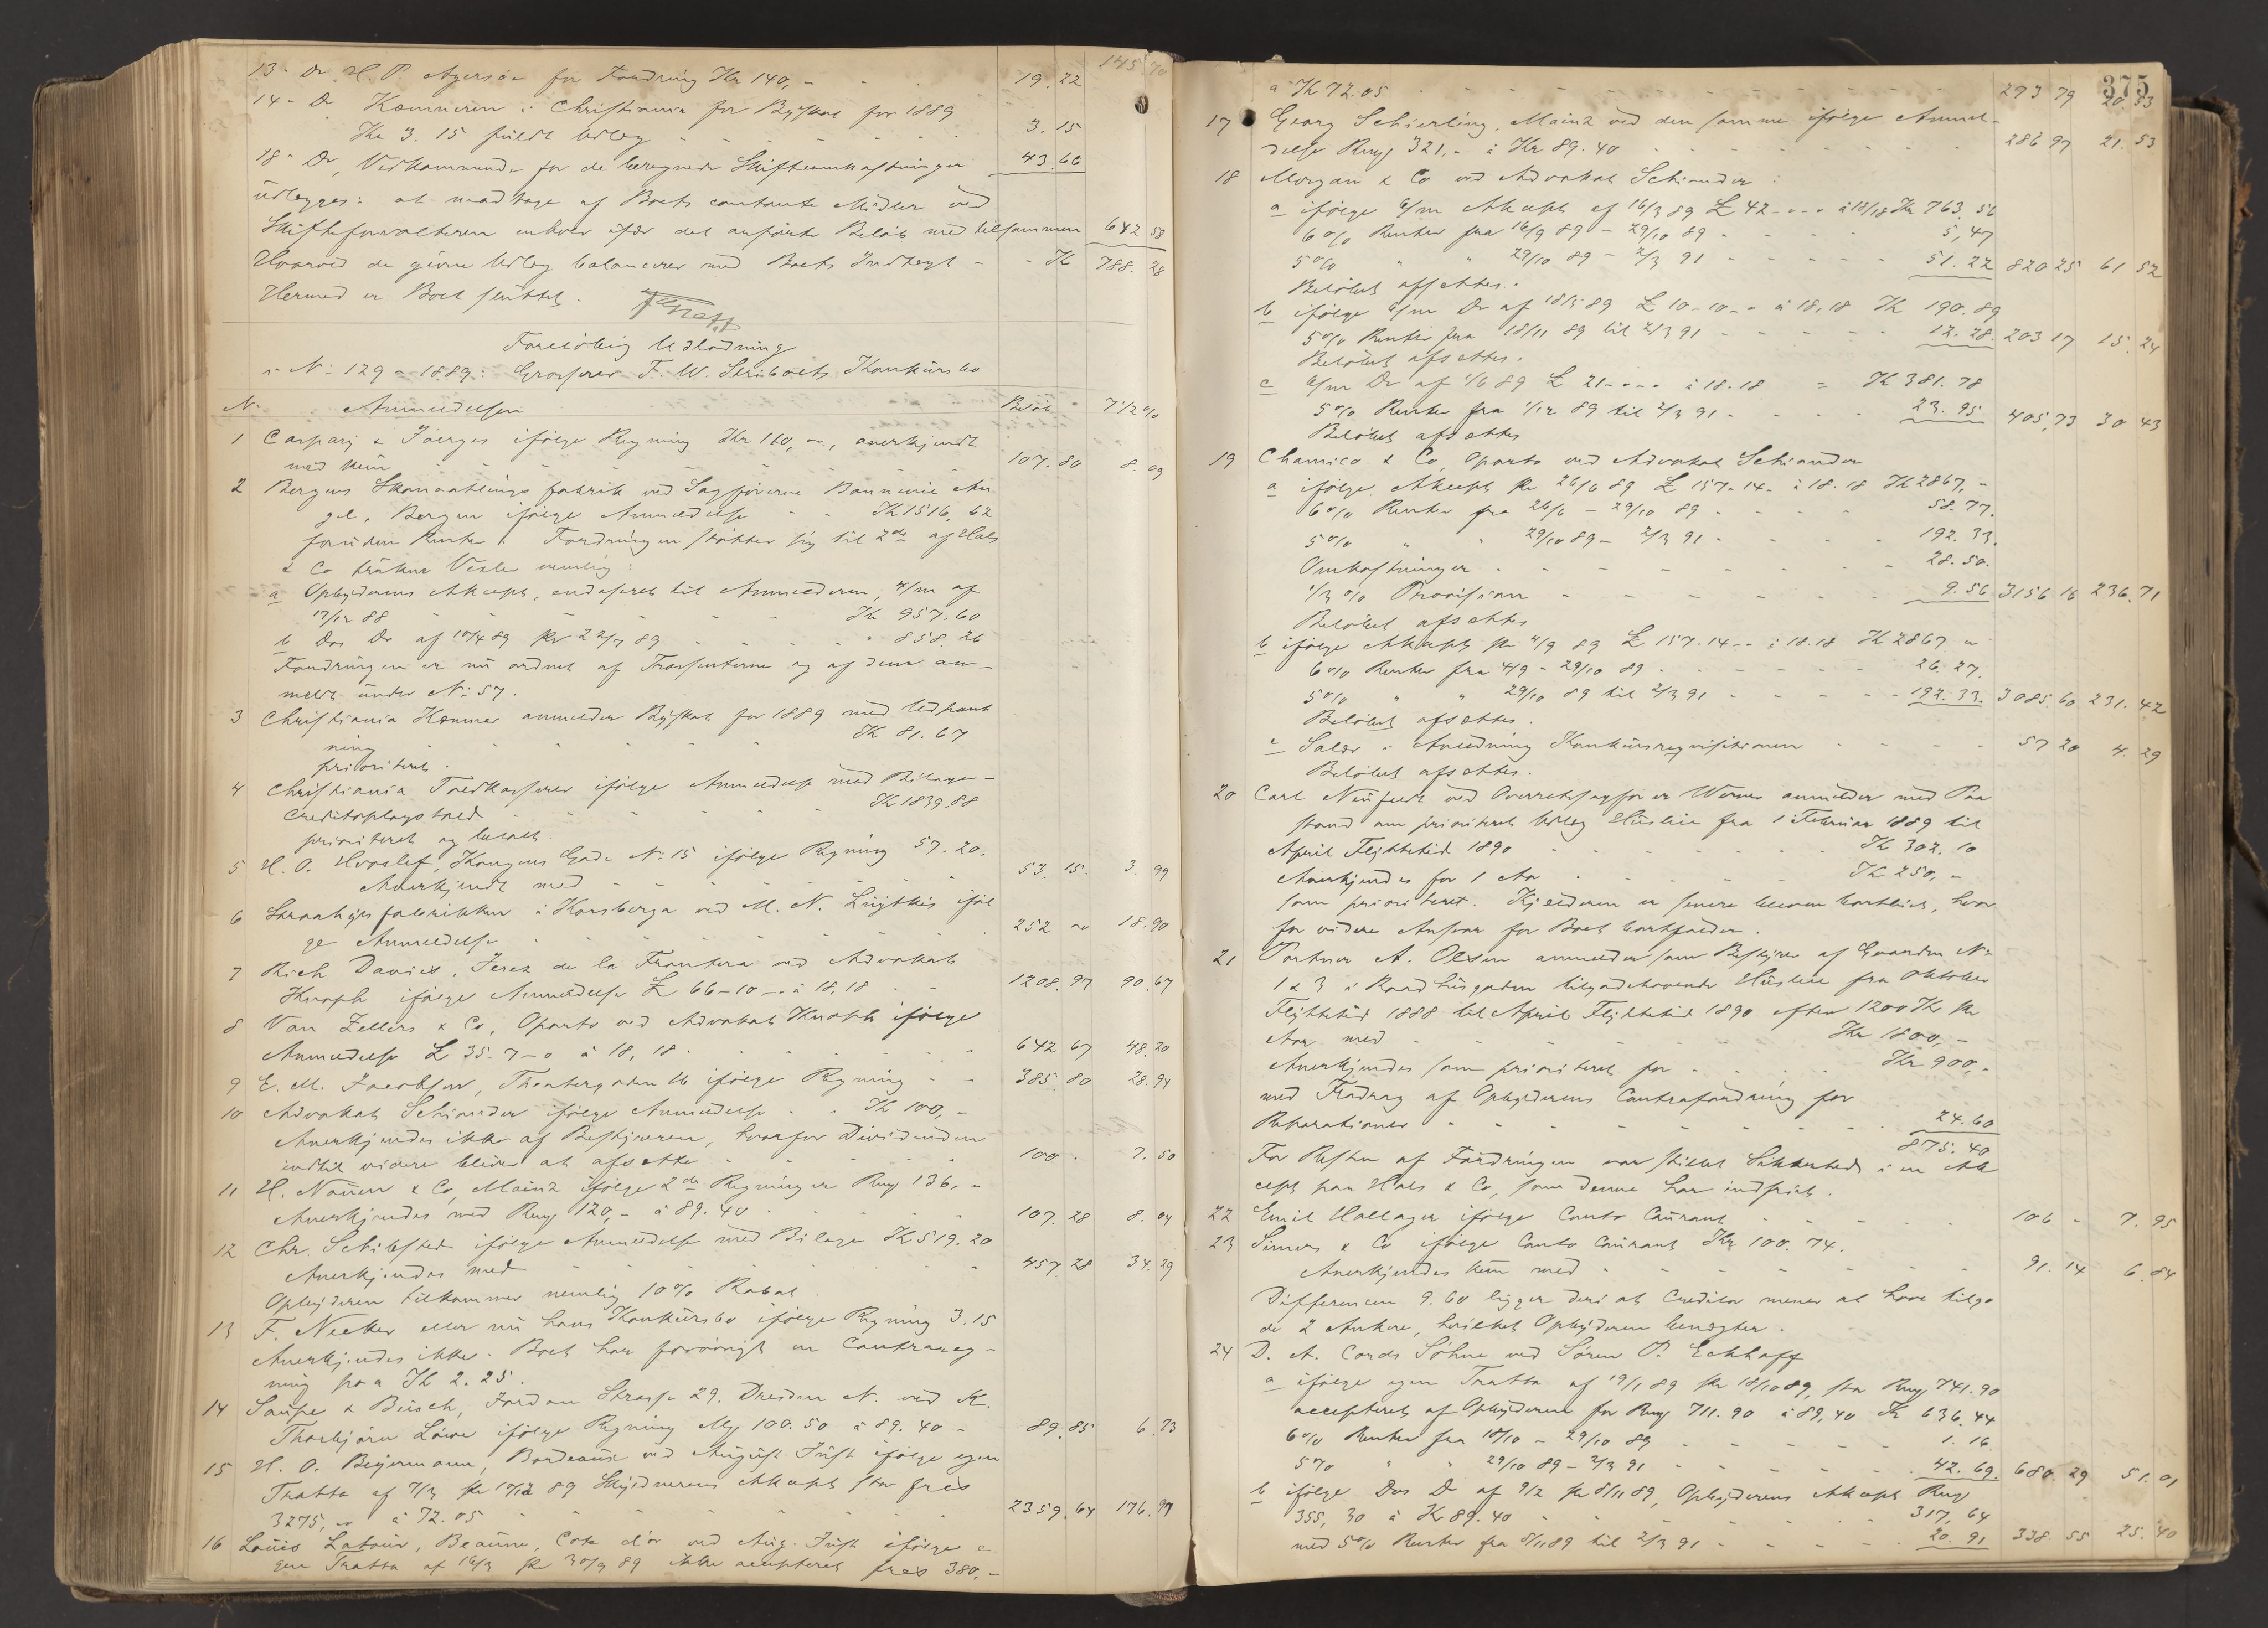 145.70
13 - Do H. P. Agersøe for Fordring Kr 140,- 19.22
14 - Do Kæmneren i Christiania for Byskat for 1889
Kr 3.15 fuldt Udlæg 3.15
18 - Do, Vedkommende for de beregnede Skifteomkostninger 43.66
udlægges: at modtage af Boets contante Midler ved
Skifteforvalteren enhver især det anførte Beløb med tilsammen 642 58
Hvorved de gjorte Udlæg balancerer med Boets Indtægt - - Kr 788.28
Hermed er Boet sluttet.
Foreløbig Udlodning
i No 129 - 1889: Grosserer F. W. Seriboets Konkursbo
No Anmeldelsen Beløb 7 1/2 %
1 Caspary & Joerges ifølge Regning Kr 110,-, anerkjendt
med kun 107.80 8.09
2 Bergens Skomaalings fabrik ved Sagfører Bonnevie An
gel, Bergen ifølge Anmeldelse Kr 1516,62
foruden Renter. Fordringen støtter sig til 2de af Hals
& Co trukne Vexler nemlig:
a Opbyderens Akcept, endosseret til Anmelderen, 4/m af
17/12 88 Kr 957.60
b Das Do af 10/4 89 pr 22/7 89 " 858.26
Fordringen er nu ordnet af Trassenterne og af dem an-
meldt under No 57.
3 Christiania Kæmner anmelder Byskat for 1889 med Udpant
ning Kr 81.67
prioriteret.
4 Christiania Toldkasserer ifølge Anmeldelse med Bilage -
Creditoplagstold Kr 1839.88
prioriteret og betalt.
5 H. O. Hvoslef, Kongens Gade No 15 ifølge Regning 57.20.
Anerkjendt med 53.15. 3.99
6 Straahylsfabrikken i Kongsberg ved M. N. Lüytkis iføl
ge Anmeldelse 252 " 18.90
7 Rich Davies, Jerez de la Frontera ved Advokat
Knoph ifølge Anmeldelse £ 66-10-. à 18.18 1208.97 90.67
8 Van Zellers & Co, Oporto ved Advokat Knoph ifølge
Anmeldelse £ 35-7-0 à 18,18 642 67 48.20
9 E. M. Jacobsen, Theatergaden 16 ifølge Regning 385.80 28.94
10 Advokat Schiander ifølge Anmeldelse Kr 100,-
Anerkjendes ikke af Bestyreren, hvorfor Dividenden
indtil videre bliver at afsætte 100 . 7.50
11 H. Nauen & Co, Mainz ifølge 2de Regninger Rmg 136,-
Anerkjendes med Rmg 120,- à 89.40 107.28 8.04
12 Chr. Schibsted ifølge Anmeldelse med Bilage Kr 519.20
Anerkjendes med 457.28 34.29
Opbyderen tilkommer nemlig 10% Rabat.
13 F. Necker eller nu hans Konkursbo ifølge Regning 3.15
Anerkjendes ikke. Boet har forøvrigt en Contrareg-
ning paa Kr 2.25.
14 Saupe & Busch, Jordan Strasse 29. Dresden N. ved K.
Thorbjørn Løwe ifølge Regning Mg 100.50 à 89.40 - 89.85 6.73
15 H. O. Beyermann, Bordeaux ved August Just ifølge egen
Tratta af 7/3 pr 10/12 89 Skyldnerens Akcept stor frcs
3275,- à 72.05 2359.64 176.97
16 Louis Latour, Beaune, Cote d'or ved Aug. Just ifølge e
gen Tratta af 16/3 pr 30/9 89 ikke accepteret frcs 380,-
375
à Kr 72.05 273 79 20.53
17 Georg Schierling, Mainz ved den samme ifølge Anmel-
delse Rmg 321,- à Kr 89.40 286 97 21.53
18 Morgan & Co ved Advokat Schiander:
a ifølge 6/m Akcept af 16/3 89 £ 42-.-. à 18/18 Kr 763.56
6% Renter fra 16/9 89 - 29/10 89 5,47
5% " " 29/10 89 - 2/3 91 51.22 820 25 61 52
Beløbet afsættes.
b ifølge 6/m Do af 18/5 89 £ 10-10-. à 18,18 Kr 190.89
5% Renter fra 18/11 89 til 2/3 91 12.28. 203 17 15.24
Beløbet afsættes.
c 6/m Do af 1/6 89 £ 21-.-. à 18.18 = Kr 381.78
5% Renter fra 1/12 89 til 2/3 91 23.95 405,73 30 43
Beløbet afsættes
19 Chamico & Co, Oporto ved Advokat Schiander
a ifølge Akcept pr 26/6 89 £ 157-14- à 18.18 Kr 2867,-
6% Renter fra 26/6 - 29/10 89 58.77.
5% " " 29/10 89 - 2/3 91 192.33.
Omkostninger 28.50.
1/3 % Provision 9.56 3156 16 236.71
Beløbet afsættes
b ifølge Akcept pr 4/9 89 £ 157.14-. à 18.18 Kr 2867 "
6% Renter fra 4/9 - 29/10 89 26.27.
5% " " 29/10 89 til 2/3 91 192.33. 3085.60 231.42
Beløbet afsættes.
c Salær i Anledning Konkursrequisitionen 57 20 4.29
Beløbet afsættes.
20 Carl Neufeldt ved Overretssagfører Werner anmelder med Paa
stand om prioriteret Udlæg Husleie fra 1 Februar 1889 til
April Flyttetid 1890 Kr 302.10
Anerkjendes for 1 Aar Kr 250,-
som prioriteret. Kjælderen er senere bleven bortleiet, hvor
for videre Ansvar for Boet bortfalder.
21 Portner A. Olsen anmelder som Bestyrer af Gaarden No
1 & 3 i Raadhusgaden tilgodehavende Husleie fra Oktober
Flyttetid 1888 til April Flyttetid 1890 efter 1200 Kr pr
Aar med Kr 1800,-
Anerkjendes som prioriteret for Kr 900,-
med Fradrag af Opbyderens Contrafordring for
Reparationer 24.60
875.40
For Resten af Fordringen var stillet Sikkerhed i en Ak
cept paa Hals & Co, som denne har indfriet.
22 Emil Hallager ifølge Conto Courant 106 - 7.95
23 Simers & Co ifølge Conto Courant Kr 100.74.
Anerkjendes kun med 91.14 6.84
Differencen 9.60 ligger deri at Creditor mener at have tilgo
de 2 Ankere, hvilket Opbyderen benægter.
24 D. A. Cords Söhne ved Søren P. Eckhoff
a ifølge egen Tratta af 19/1 89 pr 18/10 89, stor Rmg 741.90
accepteret af Opbyderen for Rmg 711.90 à 89,40 Kr 636.44
6% Renter fra 18/10 - 29/10 89 1.16.
5% " " 29/10 89 - 2/3 91 42.69. 680.29 51.01
b ifølge Das Do af 9/2 pr 8/11 89, Opbyderens Akcept Rmg
355,30 à Kr 89.40 317,64
med 5% Renter fra 8/11 89 til 2/3 91 20.91 338.55 25.40